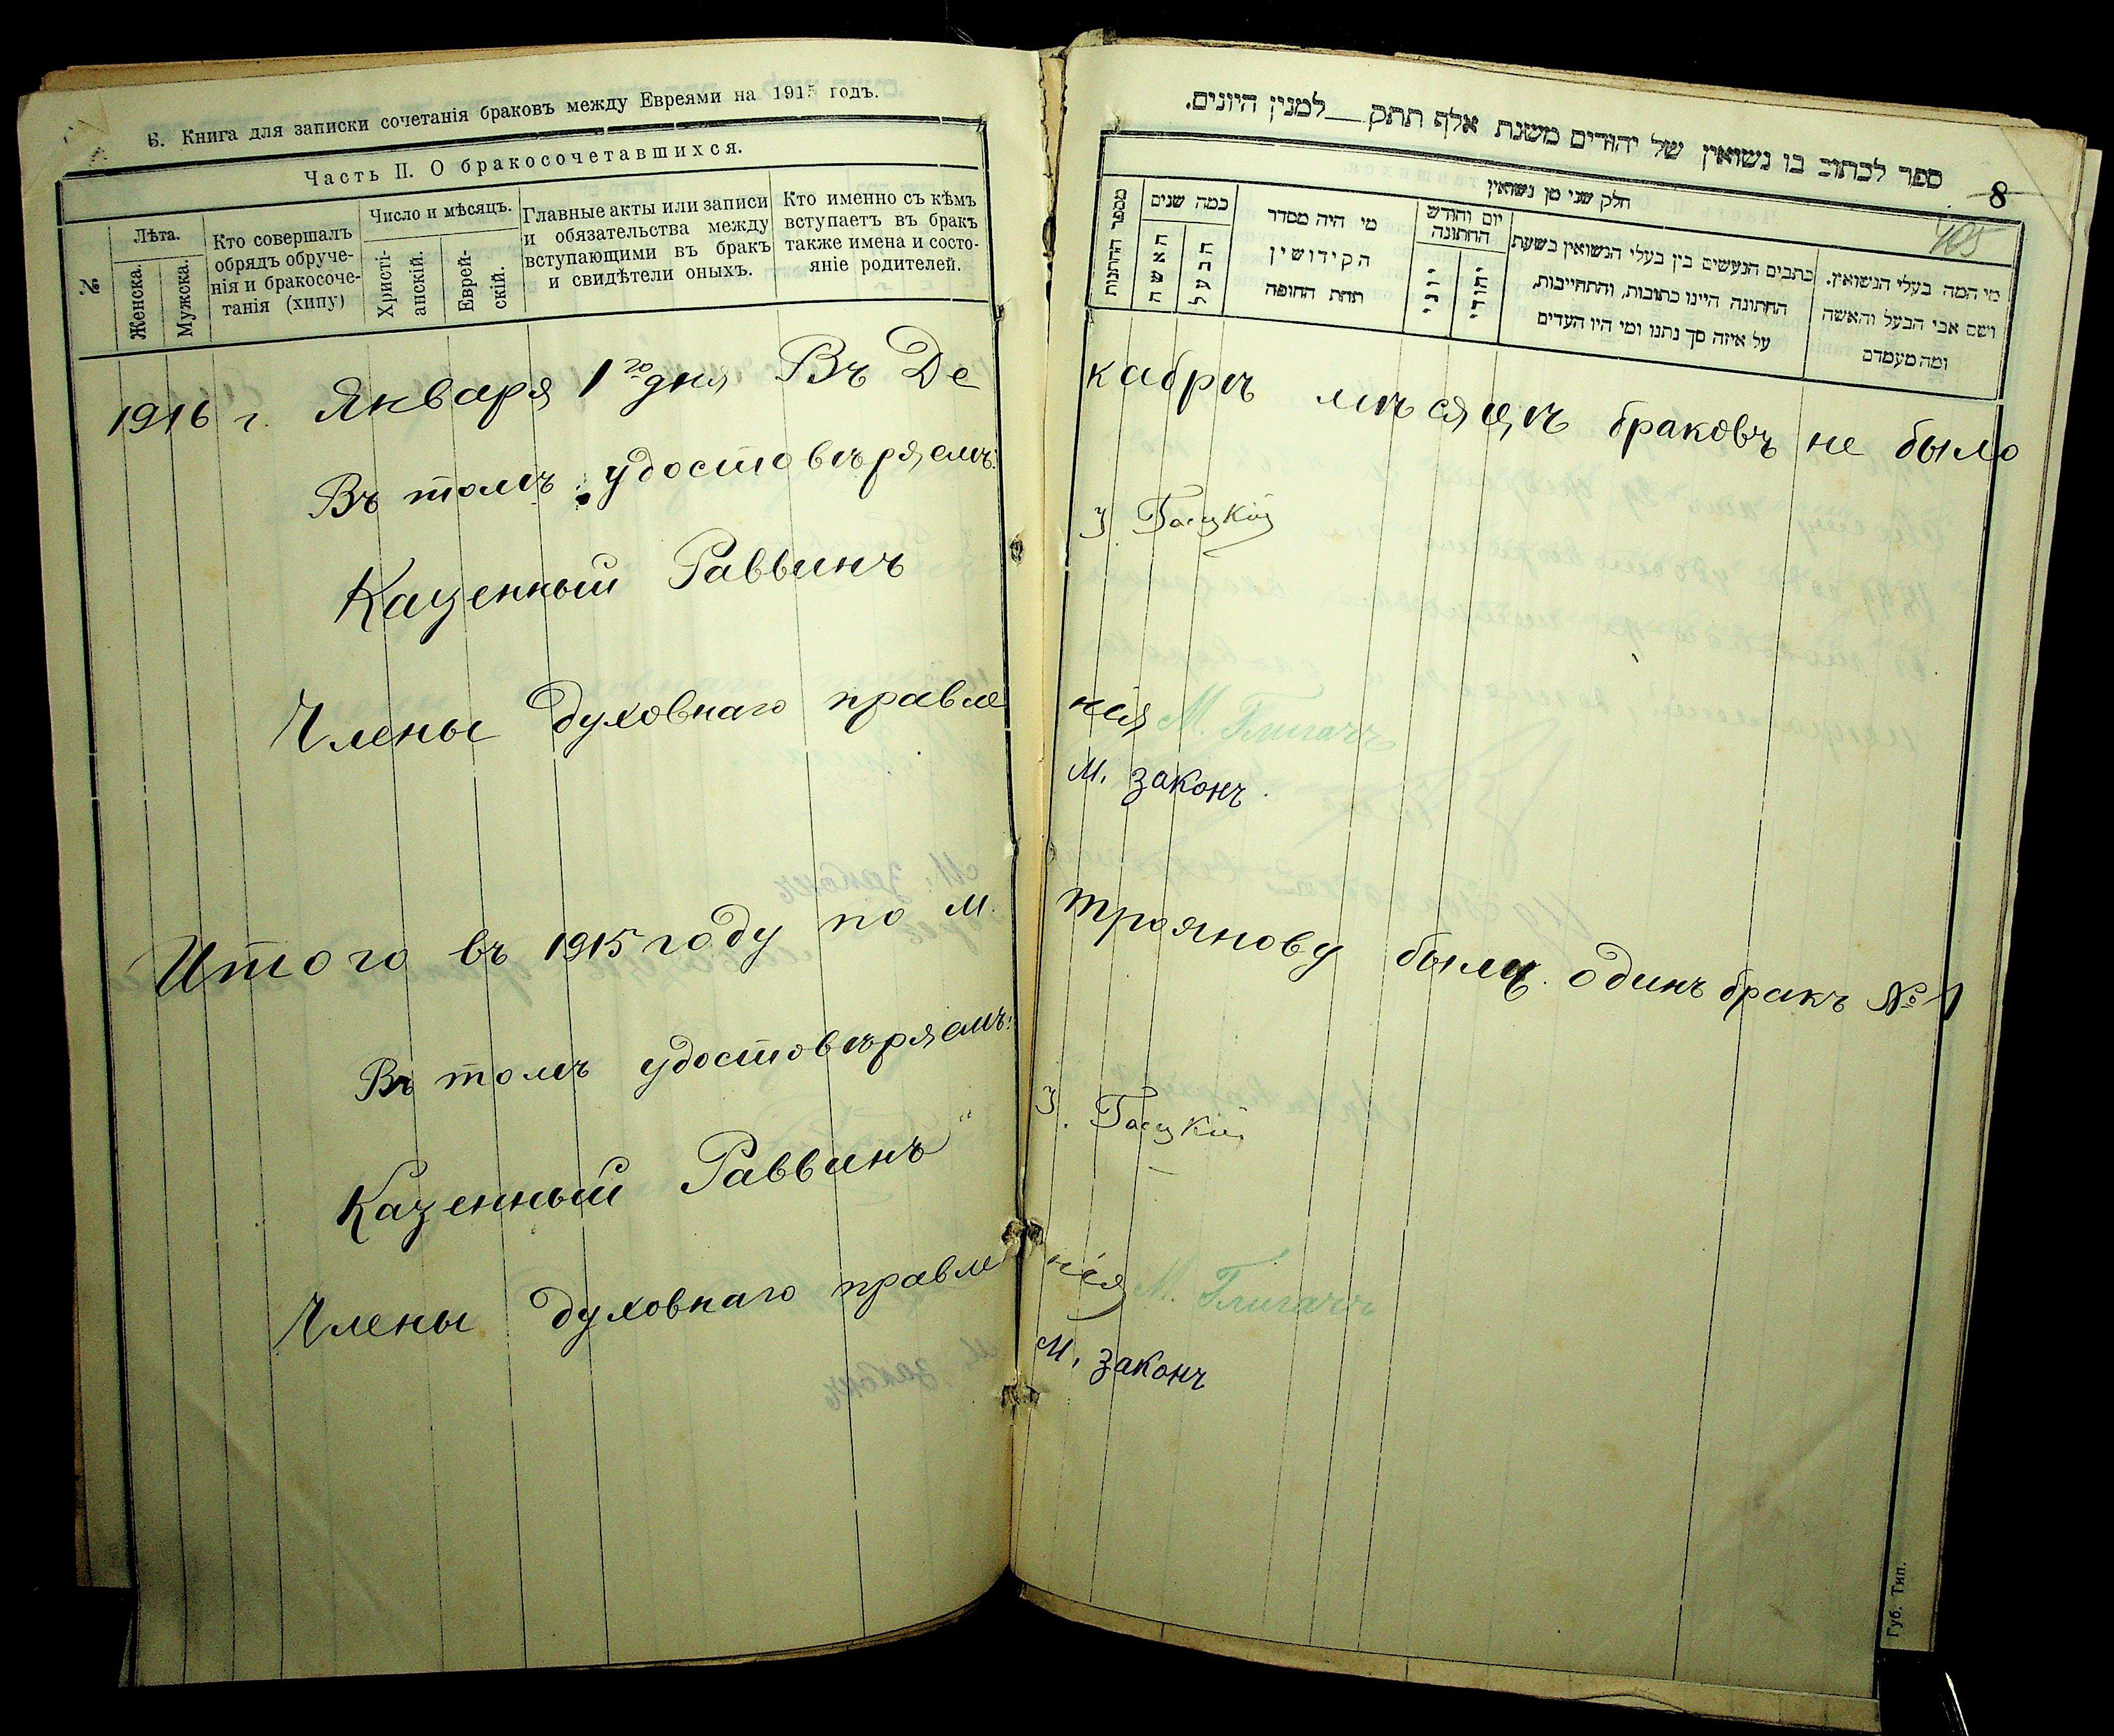 Б. Книга для записки сочетанія браковъ между Евреями на 1915 годъ.
Часть II. О бракосочетавшихся.
№
Лѣта.
Женска.
Мужска.
Кто совершалъ
обрядъ обруче-
нія и бракосоче-
танія (хипу)
Число и мѣсяцъ.
Христі-
анскій.
Еврей-
скій.
Главные акты или записи
и обязательства между
вступающими въ бракъ
и свидѣтели оныхъ.
Кто именно съ кѣмъ
вступаетъ въ бракъ
также имена и состо-
яніе родителей.
ספר לכתוב בו נשואין של יהודים משנת אלף תתק__למנין היונים.
8
405
חלק שני מן נשואין
מספר החתונות
כמה שנים
האשה
הבעל
מי היה מסדר
הקידושין
תחת החופה
יום וחודש
החתונה
יוני
יהודי
כתבים הנעשים בין בעלי הנשואין בשעת
החתונה היינו כתובות, והתחייבות,
על איזה סך נתנו ומי היו העדים
מי המה בעלי הנשואין.
ושם אבי הבעל והאשה
ומה מעמדם
1916 г. Января 1го дня Въ Декабрѣ мѣсяцѣ браковъ не было
Въ томъ удостовѣряемъ:
Казенный Раввинъ
Члены духовнаго правленія М. Глигачъ
М. Законъ
Итого въ 1915 году по м. Троянову былъ одинъ бракъ № 1
Въ томъ удостовѣряемъ:
Казенный Раввинъ
Члены духовнаго правленія М. Глигачъ
М. Законъ
Губ. Тип.